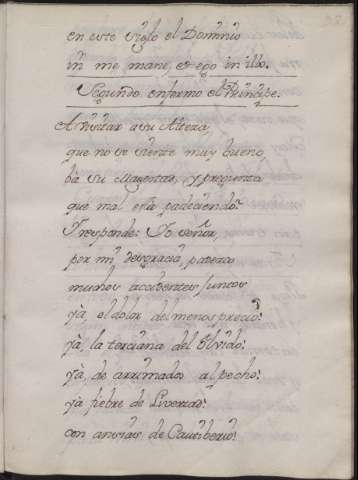 en este siglo el Dominio
in me mane, et ego in illo.
Segundo enfermo el Principe.
A visitar a su Alteza,
que no se siente muy bueno
bá su Magestad, y pregunta
que mal está padeciendo?
Y responde: Yo señor,
por mi desgracia, padezco
muchos accidentes juntos
yá, el dolor del menosprecio:
yá, la terciana del Olvido:
yá, de arrimados al pecho:
yá fiebre de Livertad:
con ansias de Cautiberio: